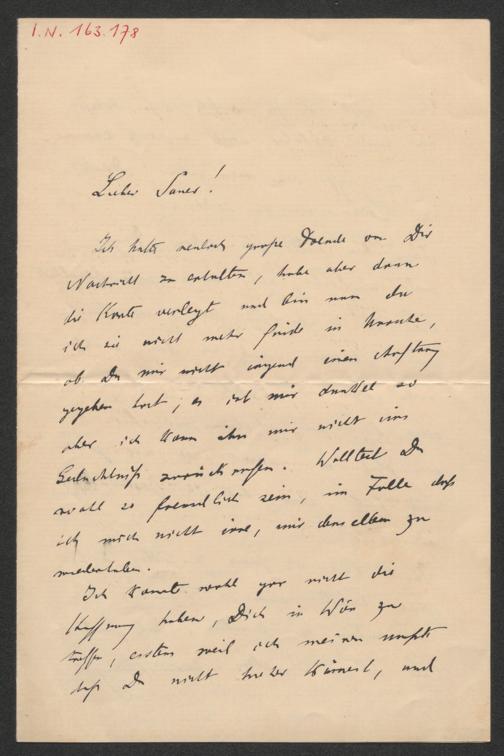 I.N. 163.178
Lieber Sauer!
Ich hatte neulich große Freude von Dir
Nachricht zu erhalten, habe aber dann
die Karte verlegt und bin nun da
ich sie nicht mehr finde in Unruhe,
ob Du mir nicht irgend einen Auftrag
gegeben hast; es ist mir dunkel so
aber ich kann ihn mir nicht ins
Gedächtniß zurückrufen. Wolltest Du
wohl so freundlich sein, im Falle daß
ich mich nicht irre, mir denselben zu
wiederholen.
Ich konnte wohl gar nicht die
Hoffnung haben, Dich in Wien zu
treffen, erstens weil ich meinen mußte
daß Du nicht hieher kämest, und